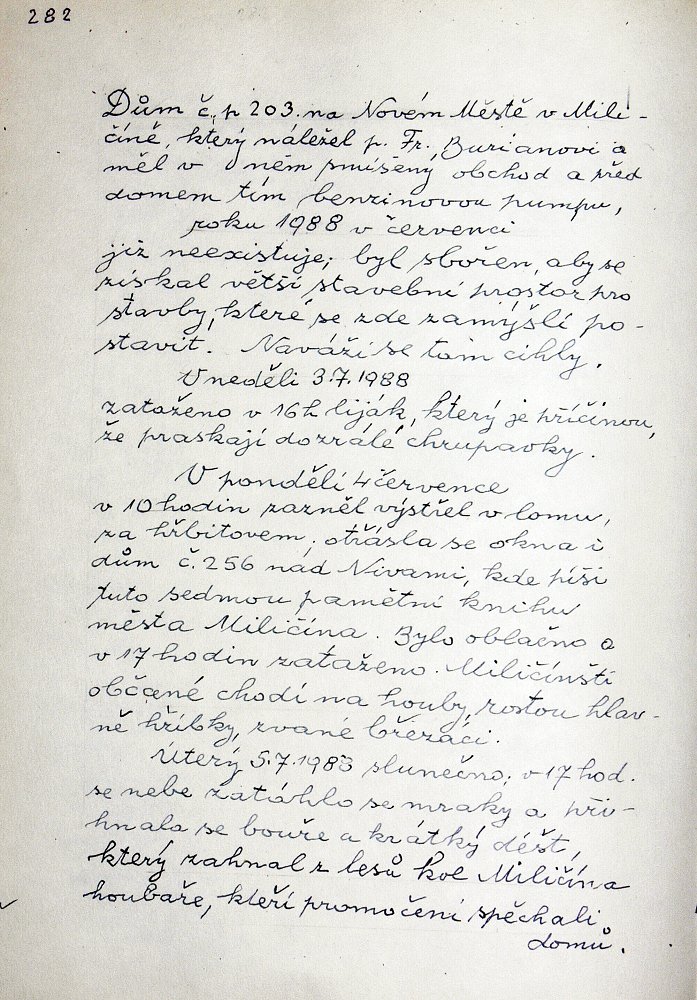 282
Dům č. p 203. na Novém Městě v Mili-
číně, který náležel p. Fr. Burianovi a
měl v něm smíšený obchod a před
domem tím benzinovou pumpu,
roku 1988 v červenci
již neexistuje; byl sbořen, aby se
získal větší stavební prostor pro
stavby, které se zde zamýšlí po-
stavit. Naváží se tam cihly.
V neděli 3.7.1988
zataženo v 16h liják, který je příčinou,
že praskají dozrálé chrupavky.
V pondělí 4 července
v 10 hodin zazněl výstřel v lomu,
za hřbitovem; otřásla se okna i
dům č. 256 nad Nivami, kde píši
tuto sedmou pamětní knihu
města Miličína. Bylo oblačno a
v 17 hodin zataženo. Miličínští
občané chodí na houby, rostou hlav-
ně hřibky, zvané březáci.
Úterý 5.7.1988 slunečno; v 17 hod.
se nebe zatáhlo se mraky a při-
hnala se bouře a krátký déšť,
který zahnal z lesů kol Miličína
houbaře, kteří promočeni spěchali
domů.